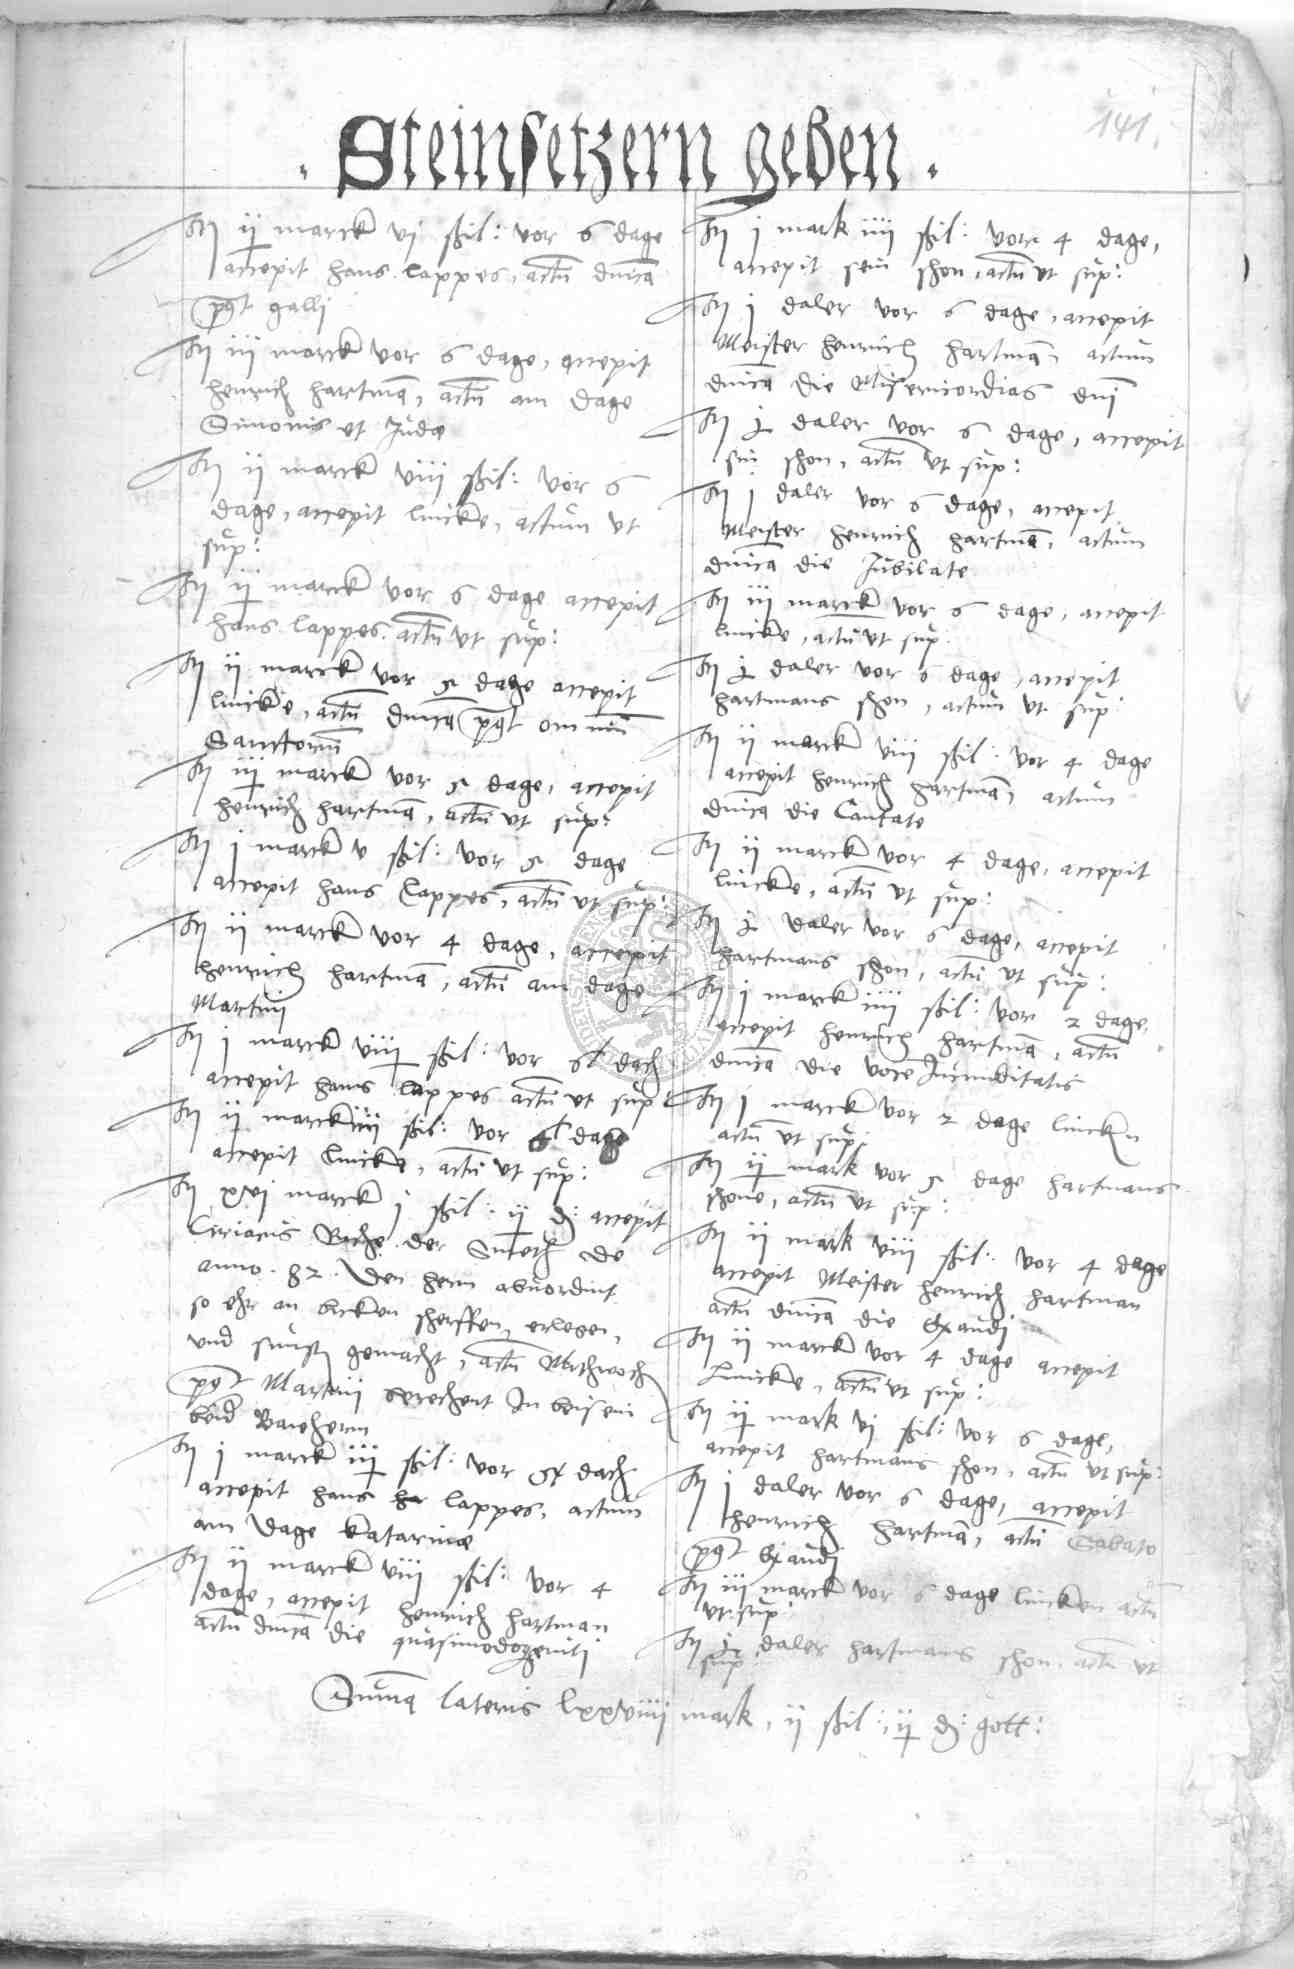 141.
Steinsetzern geben
It ij marck vj ßil: vor 6 dage
accepit hans lappes, actū dnica
post galli
It iij marck vor 6 dage, accepit
henrich hartmā, actū am dage
Simonis et Judæ
It ij marck viij ßil: vor 6
dage, accepit lincke, actum ut
sup:
It ij marck vor 6 dage accepit
hans lappes. actū ut sup:
It ij marck vor 5 dage accepit
lincke, actū dnica post omniū
Sanctorū
It iij marck vor 5 dage, accepit
henrich hartmā, actū ut sup:
It j marck v ßil: vor 5 dage
accepit hans lappes, actū ut sup:
It ij marck vor 4 dage, accepit
henrich hartmā, actū am dage
Martini
It j marck viij ßil: vor dach
accepit hans lappes actū ut sup:
It ij marck iiij ßil: vor dage
accepit lincke, actū ut sup:
It xvj marck j ßil: ij d: accepit
Ciriacus der Smeth de
anno 82. den hern
so ehr an bicken scherffen, erlegen,
und sunst gemacht, actū Mithwoch
post Martini gerechent In beisein
beid Bawhern
It j marck iij ßil: vor dach
accepit hans lappes, actum
am dage Katarinæ
It ij marck viij ßil: vor 4
dage, accepit henrich hartman
actū dnica die quasimodogeniti
It j mark iiij ßil: vor 4 dage,
accepit sein shon, actū ut sup:
It j daler vor 6 dage, accepit
Meister henrich hartmā, actum
dnica die Misericordias dni
It j daler vor 6 dage, accepit
sin shon, actū ut sup:
It j daler vor 6 dage, accepit
Meister henrich hartmā, actum
dnica die Jubilate
It iij marck vor 6 dage, accepit
lincke, actū ut sup:
It j daler vor 6 dage, accepit
hartmans shon, actum ut sup:
It ij marck viij ßil: vor 4 dage
accepit henrich hartmā, actum
dnica die Cantate
It ij marck vor 4 dage, accepit
lincke, actū ut sup:
It j daler vor 6 dage, accepit
hartmans shon, actū ut sup:
It j marck iiij ßil: vor 2 dage,
accepit henrich hartmā, actū
dnica die vocē Jucunditatis
It j marck vor 2 dage lincken
actū ut sup:
It ij mark vor 5 dage hartmans
shone, actū ut sup:
It ij mark viij ßil: vor 4 dage
accepit Meister henrich hartman
actū dnica die Exaudi
It ij marck vor 4 dage accepit
Lincke, actū ut sup:
It ij mark vj ßil: vor 6 dage,
accepit hartmans shon, actū ut sup:
It j daler vor 6 dage, accepit
henrich hartmā, actū Sabato
post Exaudi
It iij marck vor 6 dage lincken actū
ut sup:
It j daler hartmans shon. actū ut
sup:
Suma lateris lxxviiij mark, ij ßil:, ij d: gott: